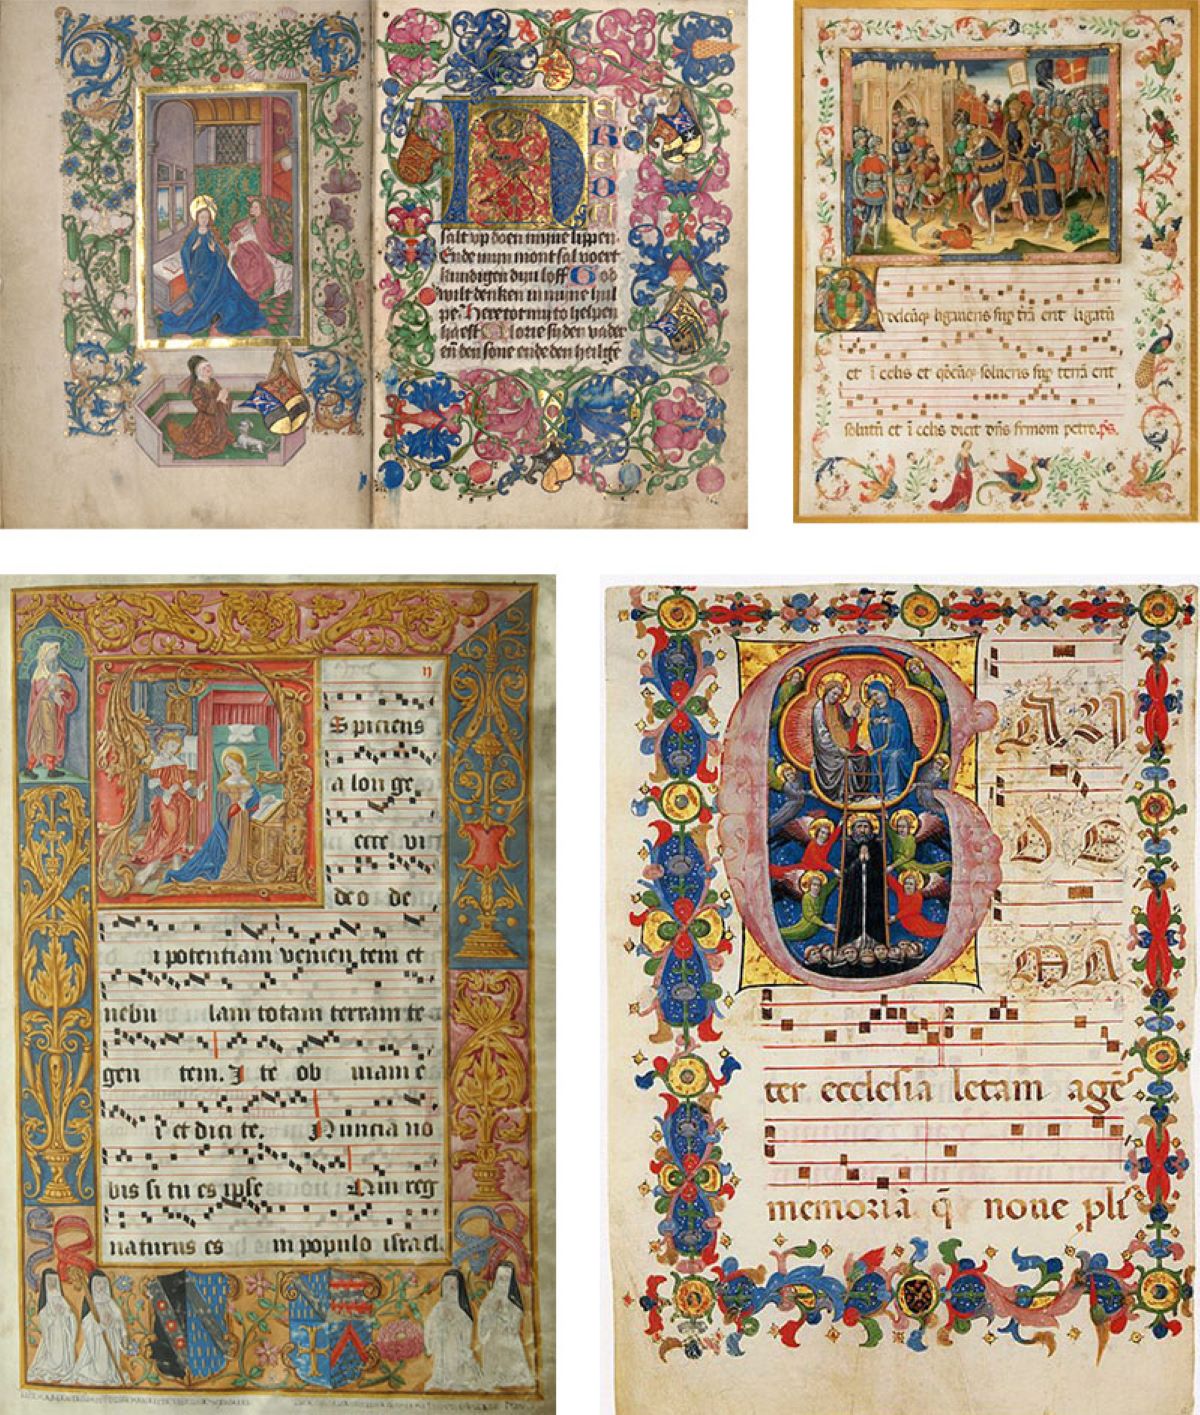 H
ERE
DO
salt up doen mijne lippen.
Ende mijn mont sal voert
kundigen dijn loff God
wilt denken in mijne hul
pe. Here tot my to helpen
haest Glorie sy den vader
eñ den sone ende den heilgē
ligaveris sup trā erit ligatū
et ī celis et qđcūq solveris sup terrā erit
solutū et ī celis dicit dñs simoni petro. ps.
Spiciens
a longe
ecce vi
deo de
i potentiam venien tem et
nebu lam totam terram te
gen tem. I te ob viam e
i et dici te. Nuncia no
bis si tu es ipse Qui reg
naturus es in populo israel
ter ecclesia letam agē
memoriā q̄ noue pli